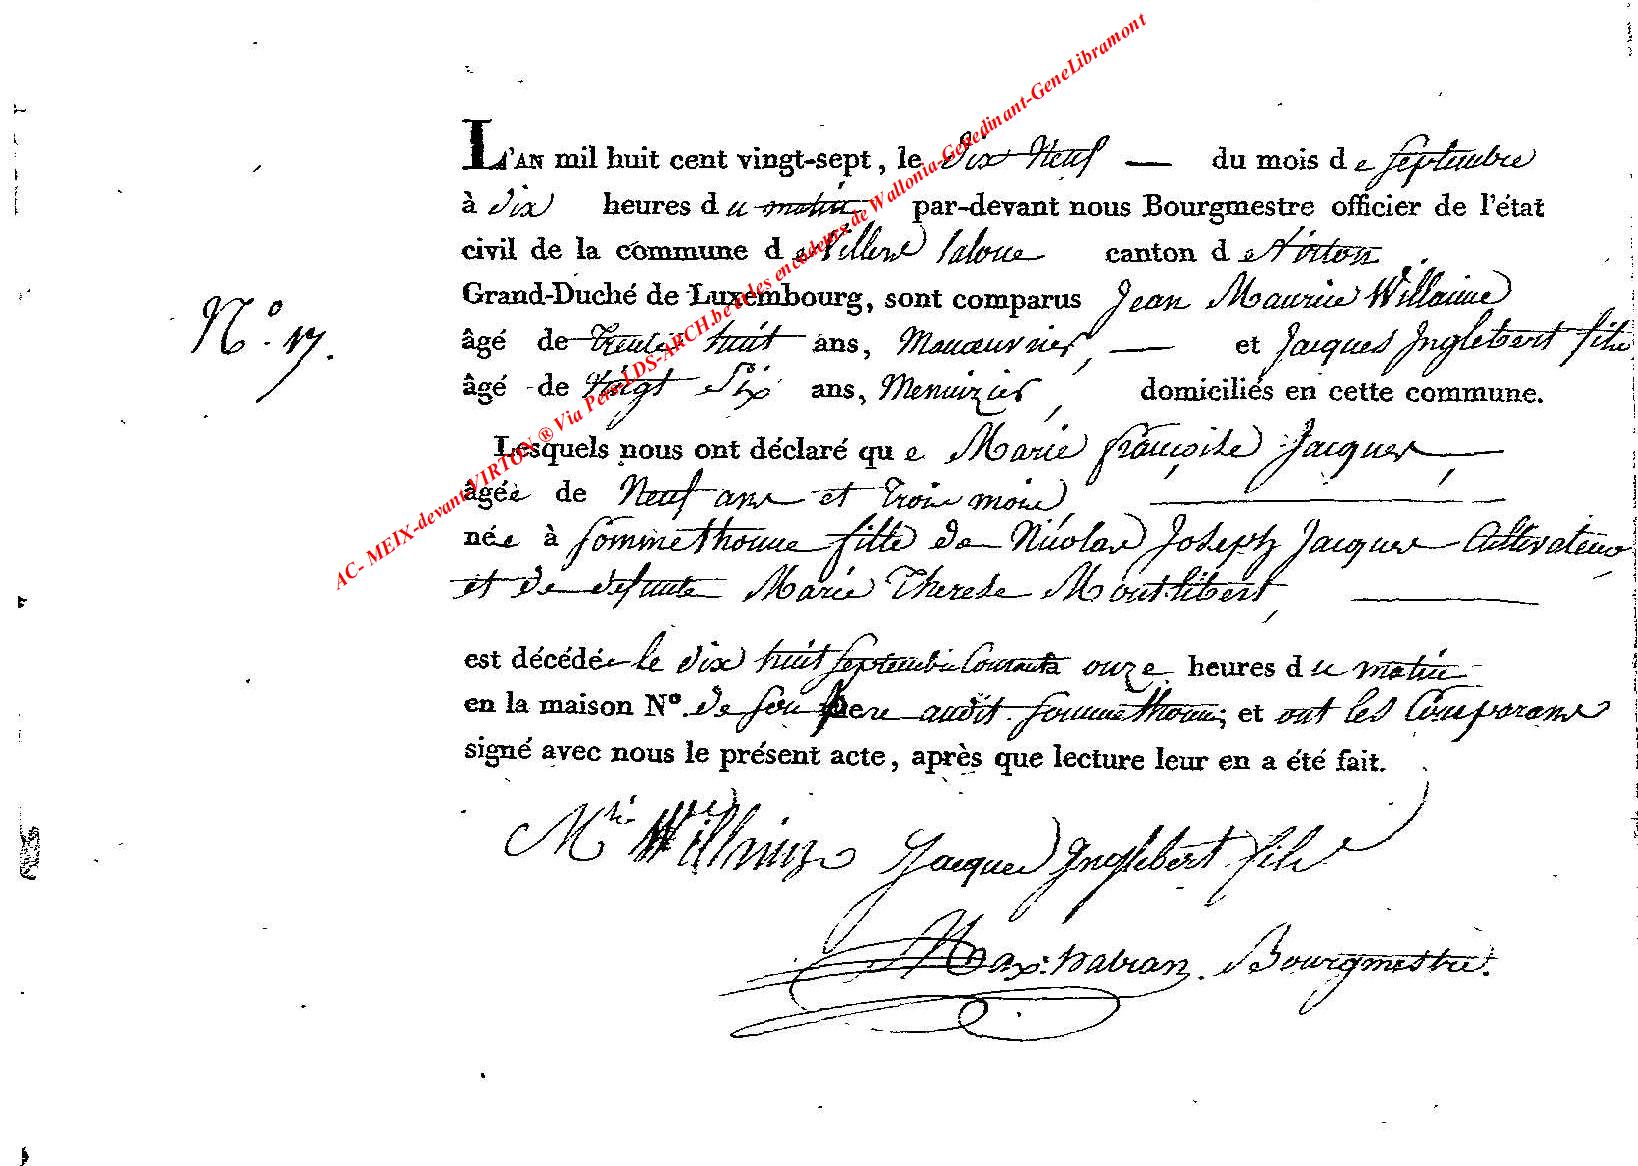 AC- MEIX-devant-VIRTON ® Via Pers-LDS-ARCH.be et les encodeurs de Wallonia-Genedinant-GeneLibramont
L'AN mil huit cent vingt-sept, le Dix Neuf — du mois de septembre
à dix heures du matin par-devant nous Bourgmestre officier de l'état
civil de la commune de Villers laloue canton de Virton
Grand-Duché de Luxembourg, sont comparus Jean Maurice Willaime
N.° 17.
âgé de trente huit ans, Manœuvrier, — et Jacques Inglebert fils
âgé de vingt Six ans, Menuizier, domiciliés en cette commune.
Lesquels nous ont déclaré que Marie françoise Jacques, —
âgée de Neuf ans et trois mois, —
née à sommethonne fille de Nicolas Joseph Jacques Cultivateur
et de defunte Marie Therese Montlibert, —
est décédée le dix huit septembre Courant à onze heures du matin
en la maison N°. de son pere audit sommethonne; et ont les Comparans
signé avec nous le présent acte, après que lecture leur en a été fait.
Jacques Inglebert fils
Bourgmestre.